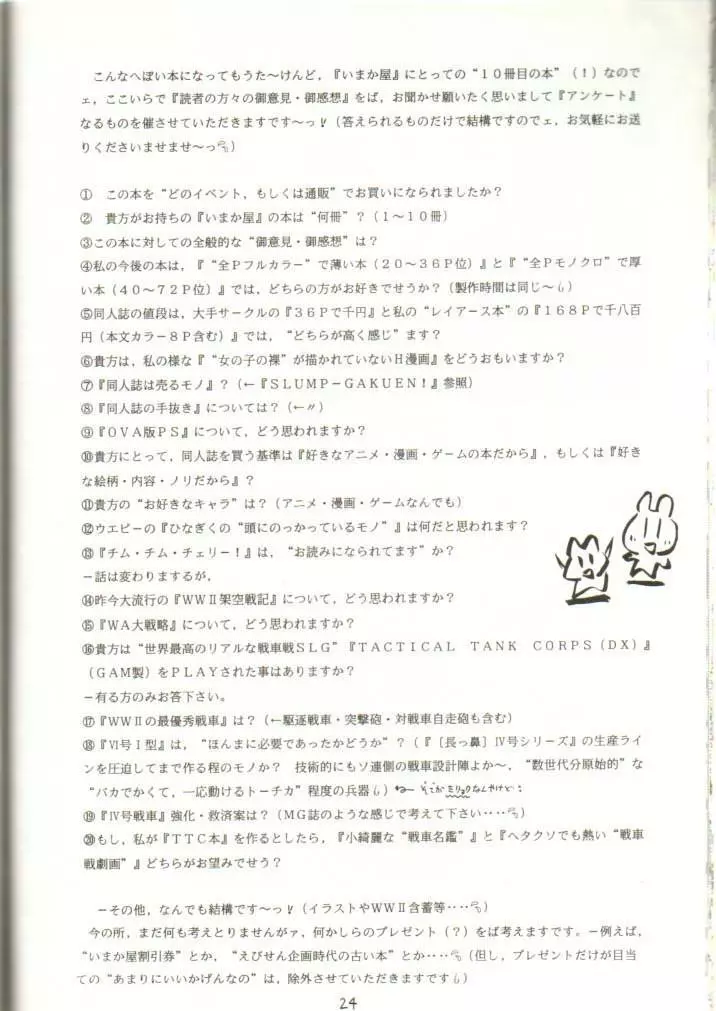 こんなへぽい本になってもうた～けんど，『いまか屋』にとっての“１０冊目の本”（！）なので
ェ，ここいらで『読者の方々の御意見・御感想』をば，お聞かせ願いたく思いまして『アンケート』
なるものを催させていただきますです～っ！（答えられるものだけで結構ですのでェ，お気軽にお送
りくださいませませ～っ）
①　この本を“どのイベント，もしくは通販”でお買いになられましたか？
②　貴方がお持ちの『いまか屋』の本は“何冊”？（１～１０冊）
③この本に対しての全般的な“御意見・御感想”は？
④私の今後の本は，『“全Ｐフルカラー”で薄い本（２０～３６Ｐ位）』と『“全Ｐモノクロ”で厚
い本（４０～７２Ｐ位）』では，どちらの方がお好きでせうか？（製作時間は同じ～）
⑤同人誌の値段は，大手サークルの『３６Ｐで千円』と私の“レイアース本”の『１６８Ｐで千八百
円（本文カラー８Ｐ含む）』では，“どちらが高く感じ”ます？
⑥貴方は，私の様な『“女の子の裸”が描かれていないＨ漫画』をどうおもいますか？
⑦『同人誌は売るモノ』？（←『ＳＬＵＭＰ－ＧＡＫＵＥＮ！』参照）
⑧『同人誌の手抜き』については？（←〃）
⑨『ＯＶＡ版ＰＳ』について，どう思われますか？
⑩貴方にとって，同人誌を買う基準は『好きなアニメ・漫画・ゲームの本だから』，もしくは『好き
な絵柄・内容・ノリだから』？
⑪貴方の“お好きなキャラ”は？（アニメ・漫画・ゲームなんでも）
⑫ウエピーの『ひなぎくの“頭にのっかっているモノ”』は何だと思われます？
⑬『チム・チム・チェリー！』は，“お読みになられてます”か？
－話は変わりまするが，
⑭昨今大流行の『ＷＷⅡ架空戦記』について，どう思われますか？
⑮『ＷＡ大戦略』について，どう思われますか？
⑯貴方は“世界最高のリアルな戦車戦ＳＬＧ”『ＴＡＣＴＩＣＡＬ　ＴＡＮＫ　ＣＯＲＰＳ（ＤＸ）』
（ＧＡＭ製）をＰＬＡＹされた事はありますか？
－有る方のみお答下さい。
⑰『ＷＷⅡの最優秀戦車』は？（←駆逐戦車・突撃砲・対戦車自走砲も含む）
⑱『Ⅵ号Ｉ型』は，“ほんまに必要であったかどうか”？（『〔長っ鼻〕Ⅳ号シリーズ』の生産ライ
ンを圧迫してまで作る程のモノか？　技術的にもソ連側の戦車設計陣よか～，“数世代分原始的”な
“バカでかくて，一応動けるトーチカ”程度の兵器）
⑲『Ⅳ号戦車』強化・救済案は？（ＭＧ誌のような感じで考えて下さい‥‥）
⑳もし，私が『ＴＴＣ本』を作るとしたら，『小綺麗な“戦車名鑑”』と『ヘタクソでも熱い“戦車
戦劇画”』どちらがお望みでせう？
－その他，なんでも結構です～っ！（イラストやＷＷⅡ含蓄等‥‥）
今の所，まだ何も考えとりませんがァ，何かしらのプレゼント（？）をば考えますです。－例えば，
“いまか屋割引券”とか，“えびせん企画時代の古い本”とか‥‥（但し，プレゼントだけが目当
ての“あまりにいいかげんなの”は，除外させていただきますです）
24